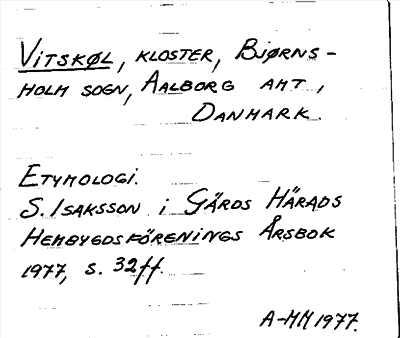 VITSKØL, KLOSTER, BJØRNS-
HOLM SOGN, AALBORG AMT,
DANMARK.
ETYMOLOGI.
S. ISAKSSON i GÄRDS HÄRADS
HEMBYGDSFÖRENINGS ÅRSBOK
1977, S. 32ff.
A-MM 1977.